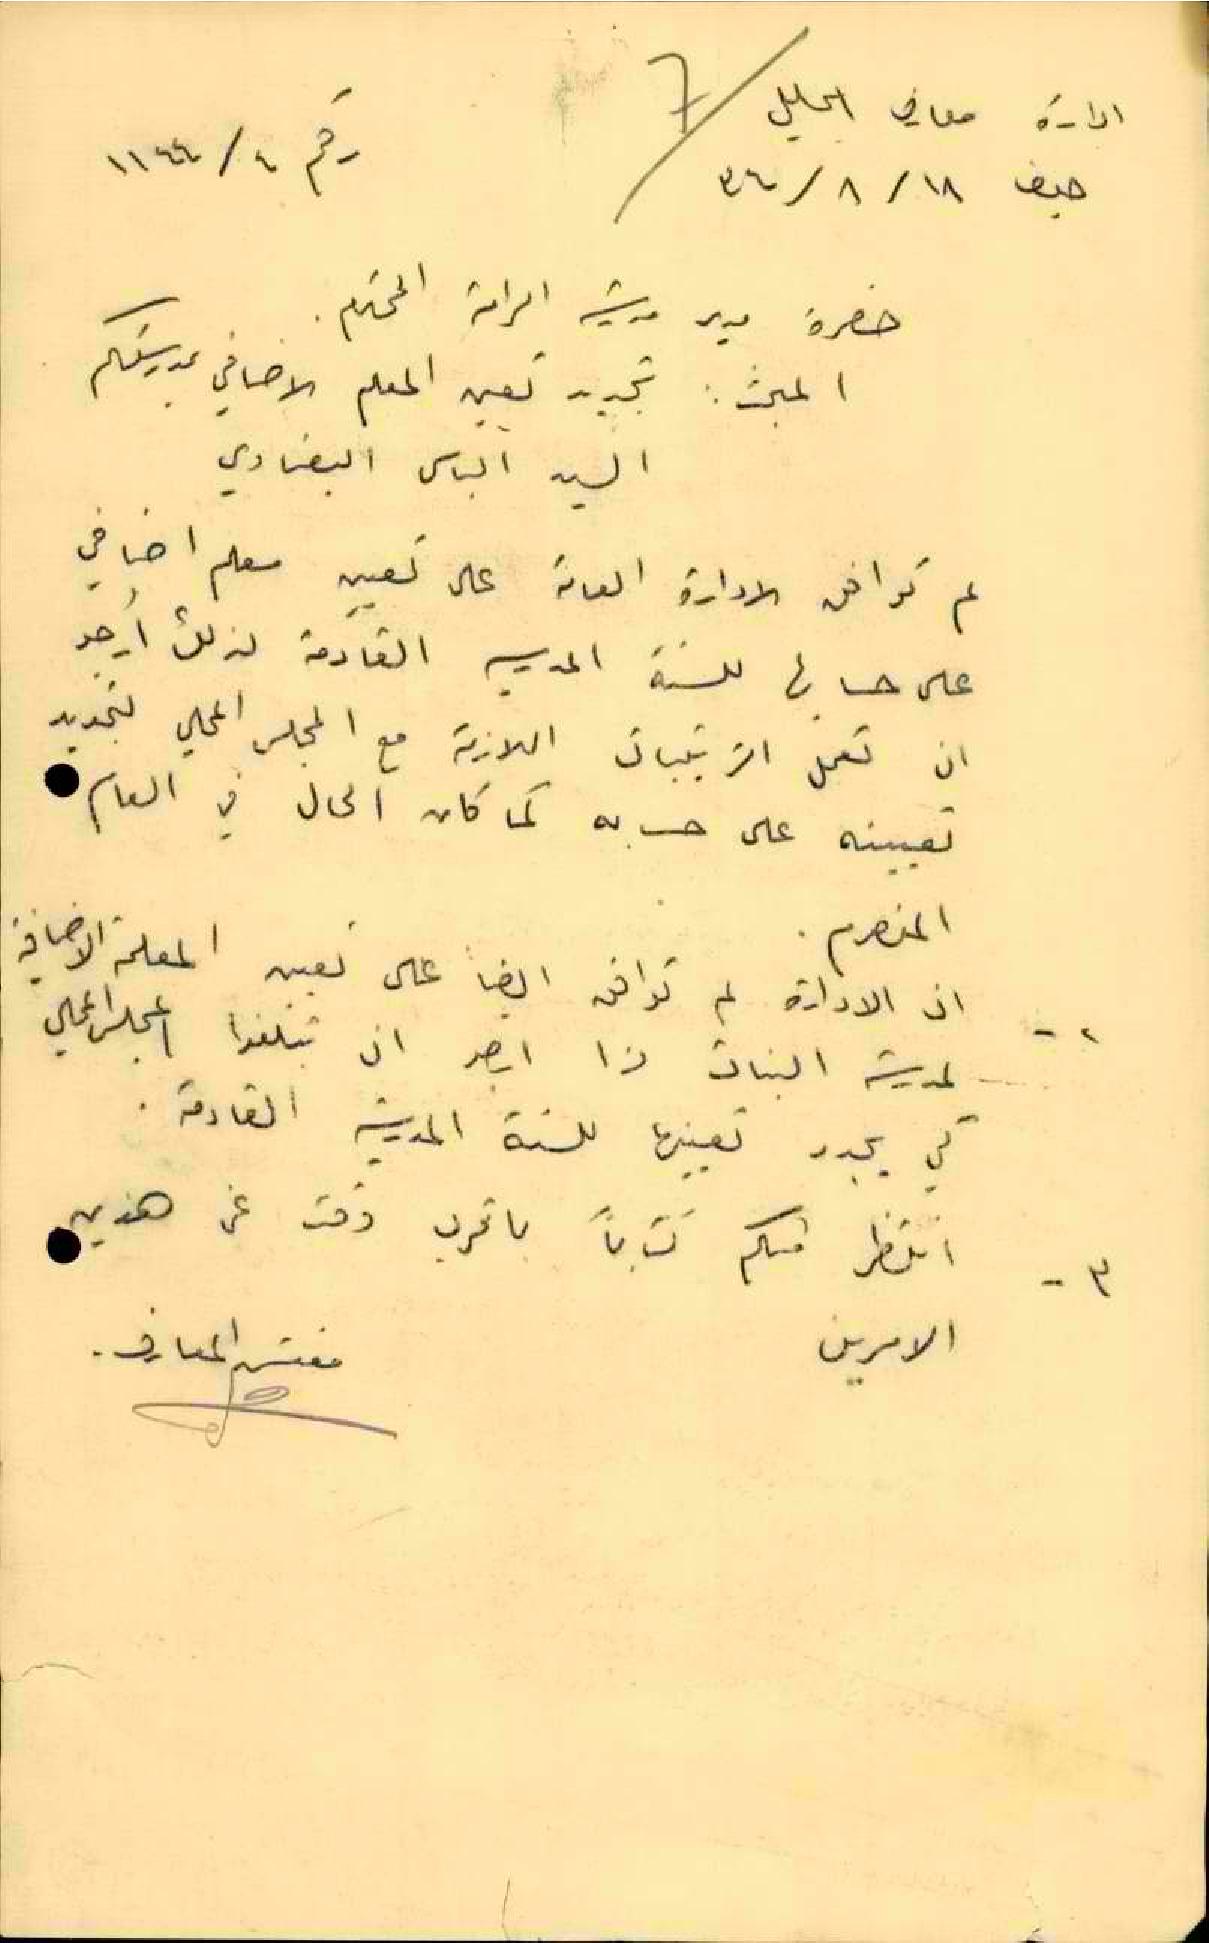 ادارة معارف الجليل
7
حيفا ١٨/٨/
رقم
حضرة مدير مدرسة الرامة المحترم.
المبحث: تجديد تعيين المعلم الاضافي بمدرستكم
السيد الياس
لم توافق الادارة العامة على تعيين معلم اضافي
على حسابها للسنة المدرسية القادمة لذلك أرجو
ان تعمل الترتيبات اللازمة مع المجلس المحلي لتجديد
تعيينه على حسابه كما كان الحال في العام
المنصرم.
٢- ان الادارة لم توافق ايضاً على تعيين المعلمة الاضافية
لمدرسة البنات لذا ارجو ان تبلغوا المجلس المحلي
كي يجدد تعيينها للسنة المدرسية القادمة.
٣- انتظر منكم كتاباً باقرب وقت عن هذين
الامرين
مفتش المعارف.